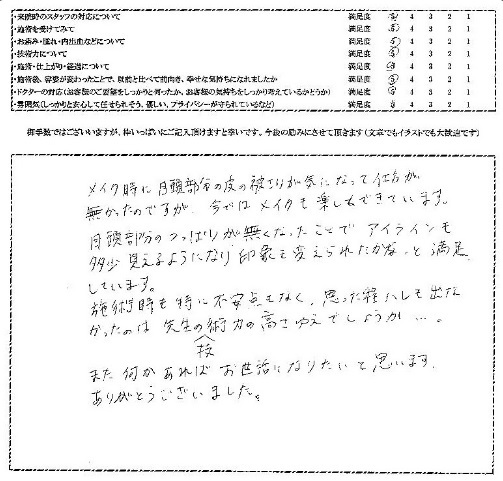 ・来院時のスタッフの対応について 満足度 5 4 3 2 1
・施術を受けてみて 満足度 5 4 3 2 1
・お痛み・腫れ・内出血などについて 満足度 5 4 3 2 1
・技術力について 満足度 5 4 3 2 1
・施術・仕上がり・経過について 満足度 5 4 3 2 1
・施術後、容姿が変わったことで、以前と比べて前向き、幸せな気持ちになれましたか 満足度 5 4 3 2 1
・ドクターの対応(お客様のご要望をしっかりと伺ったか、お客様の気持ちをしっかり考えているかどうか) 満足度 5 4 3 2 1
・雰囲気(しっかりと安心して任せられそう、優しい、プライバシーが守られているなど) 満足度 5 4 3 2 1
御手数ではございますが、枠いっぱいにご記入頂けますと幸いです。今後の励みにさせて頂きます(文章でもイラストでも大歓迎です)
メイク時に目頭部分の皮の被さりが気になって仕方が
無かったのですが、今ではメイクも楽しむできています。
目頭部分のつっぱりが無くなったことでアイラインも
多少見えるようになり印象も変えられたかな、と満足
しています。
施術時も特に不安点もなく、思った程ハレも出な
かったのは先生の術力の高さゆえでしょうか…。
技
また何かあればお世話になりたいと思います。
ありがとうございました。